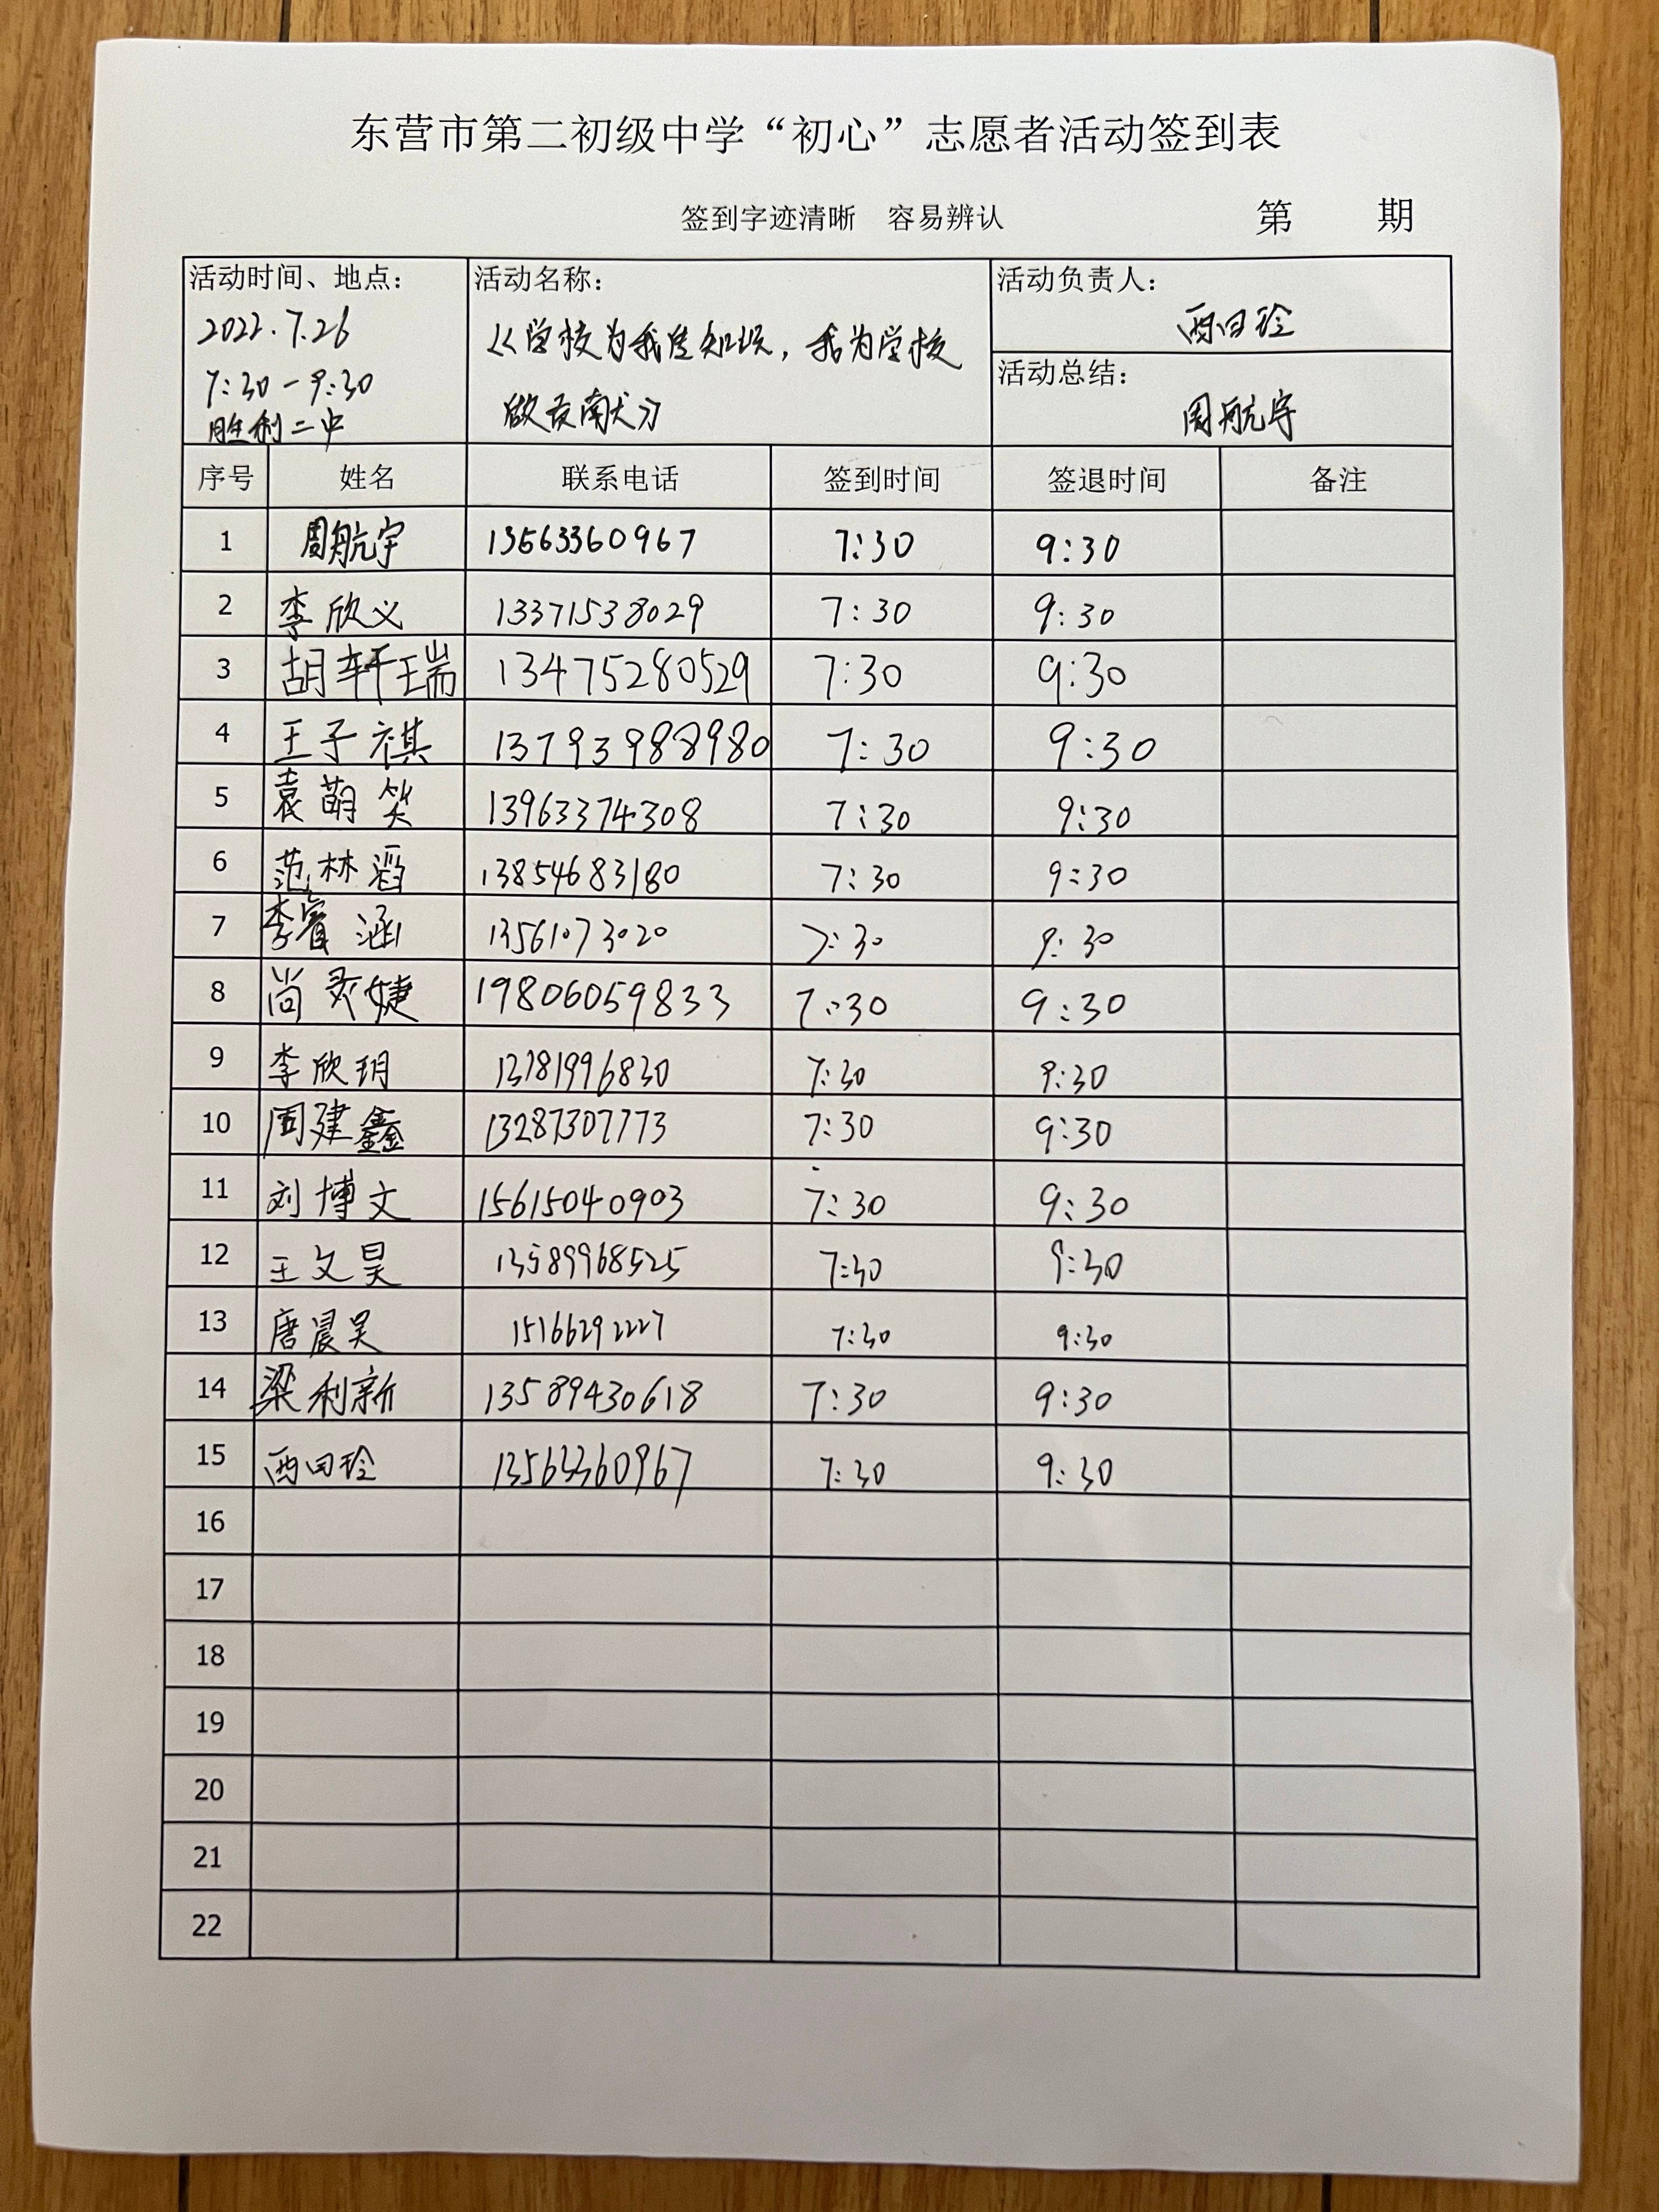 东营市第二初级中学“初心”志愿者活动签到表
签到字迹清晰 容易辨认 第 期
活动时间、地点： 活动名称： 活动负责人：
2022.7.26
7:30-9:30
胜利二中
《学校为我生知识，我为学校
做贡献》
西田玲
活动总结：
周航宇
序号 姓名 联系电话 签到时间 签退时间 备注
1 周航宇 13563360967 7:30 9:30
2 李欣义 13371538029 7:30 9:30
3 胡轩瑞 13475280529 7:30 9:30
4 王子祺 13793988980 7:30 9:30
5 袁萌笑 13963374308 7:30 9:30
6 范林滔 13854683180 7:30 9:30
7 李睿涵 13561073020 7:30 9:30
8 尚婕 19806059833 7:30 9:30
9 李欣玥 13781996830 7:30 9:30
10 周建鑫 13287307773 7:30 9:30
11 刘博文 15615040903 7:30 9:30
12 王文昊 13589968525 7:30 9:30
13 唐晨昊 15166292227 7:30 9:30
14 梁利新 13589430618 7:30 9:30
15 西田玲 13563360967 7:30 9:30
16
17
18
19
20
21
22